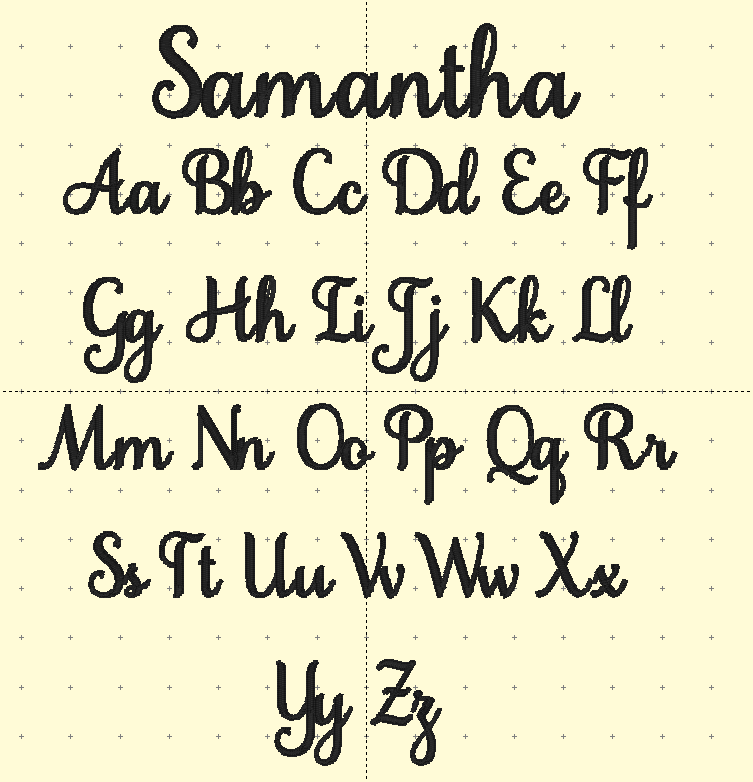 Samantha
Aa Bb Cc Dd Ee Ff
Gg Hh Ii Jj Kk Ll
Mm Nn Oo Pp Qq Rr
Ss Tt Uu Vv Ww Xx
Yy Zz